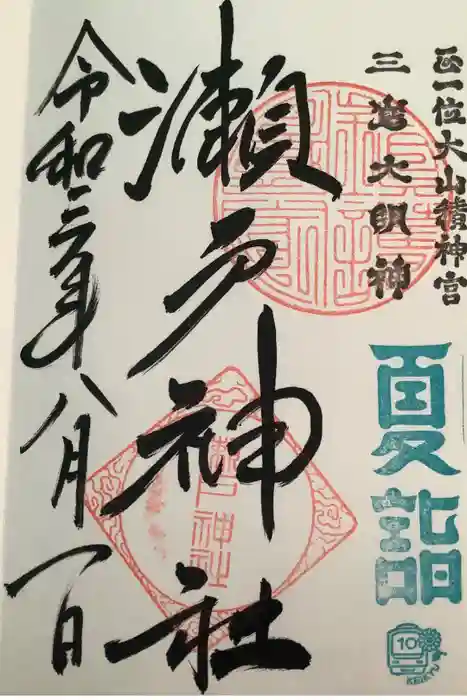 正一位大山積神宮
三島大明神
夏詣
10
KEIKYU
瀬戸神社
令和三年八月一日
瀬戸神社